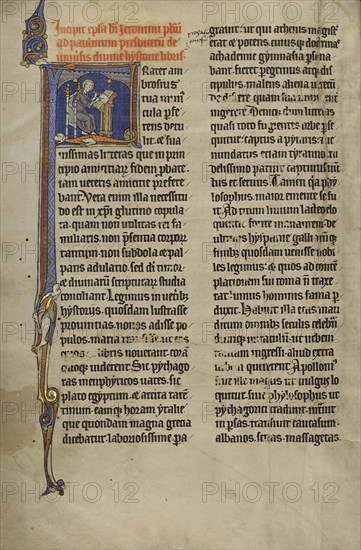 Incipit epla bti Jeronimi pbri
ad paulinum presbiteru de
omnibus divine hystorie libris
Frater am
brosius
tua mi mu
nuscula pfe
rens detu
lit et sua
uissimas litteras que in prin
cipio amicitiarum fidem pbate
iam ueteris amicitie prefere
bant Vera enim illa necessitudo
est in xpi glutino copula
ta quam non utilitas rei fa
miliaris non psentia corpor
tantum non subdola et pal
pans adulatio sed di timor
et diuinarum scripturarum studia
conciliant Legimus in ueteribus
hystoriis quosdam lustrasse
prouintias nouos adisse po
pulos maria
ex libris nouerant cora
quoque uiderent Sic pythago
ras menphyticos uates sic
plato egyptum et archita taren
tinum eamque horam ytalie
que quondam magna grecia
dicebatur laboriosissime pa
gravit ut qui athenis magister
erat et potens cuiusque doctrinas
achademie gymnasia psona
bant fieret pegrinus atque dis
cipulus malens aliena uerecunde
discere quam sua impudenter
ingerere Denique dum litteras
quasi toto fugientes orbe pse
quitur captus a pyratis et ue
nundatus etiam tyranno cru
delissimo paruit captiuus uinc
tus et seruus Tamen quia phy
losophus maior emente se fu
it Ad titum liuium lacteo elo
quentie fonte manantem de
ultimis hyspanie galliarumque fi
nibus quosdam uenisse nobi
les legimus et quos ad contem
platione sui roma non traxe
rat unius hominis fama p
duxit Habuit illa etas inau
ditum omnibus seculis celebran
dumque miraculum ut urbem
tantam ingressi aliud extra
urbem quererent Apolloni
siue ille magus ut uulgus lo
quitur siue phylosophus ut
pythagorici tradunt intrauit
psas transiuit caucasum
albanos scitas massagetas